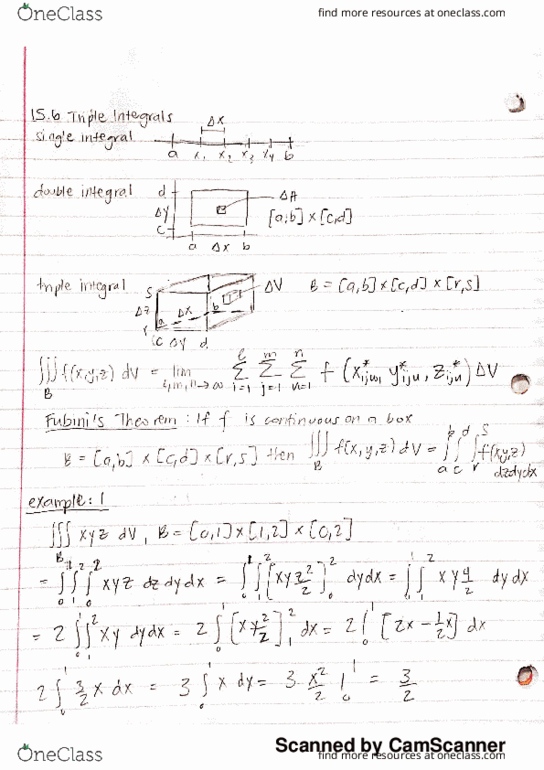 OneClass
find more resources at oneclass.com
15.6 Triple Integrals
single integral
Δx
a x₁ x₂ x₃ x₄ b
double integral
d
Δy
c
a Δx b
ΔA
[a,b] × [c,d]
triple integral
s
Δz
r
a Δx b
c Δy d
ΔV
B = [a,b] × [c,d] × [r,s]
∭_B f(x,y,z) dV = lim_{l,m,n→∞} Σ_{i=1}^{l} Σ_{j=1}^{m} Σ_{k=1}^{n} f (x*_{ijk}, y*_{ijk}, z*_{ijk}) ΔV
Fubini's Theorem: If f is continuous on a box
B = [a,b] × [c,d] × [r,s] then ∭_B f(x,y,z) dV = ∫_a^b ∫_c^d ∫_r^s f(x,y,z) dzdydx
example: 1
∭_B xyz dV, B = [0,1] × [1,2] × [0,2]
= ∫_0^1 ∫_1^2 ∫_0^2 xyz dz dy dx = ∫_0^1 ∫_1^2 [xy z²/2]_0^2 dydx = ∫_0^1 ∫_1^2 xy 4/2 dy dx
= 2 ∫_0^1 ∫_1^2 xy dydx = 2 ∫_0^1 [x y²/2]_1^2 dx = 2 ∫_0^1 [2x − 1/2 x] dx
2 ∫_0^1 3/2 x dx = 3 ∫_0^1 x dy = 3 · x²/2 |_0^1 = 3/2
Scanned by CamScanner
OneClass
find more resources at oneclass.com